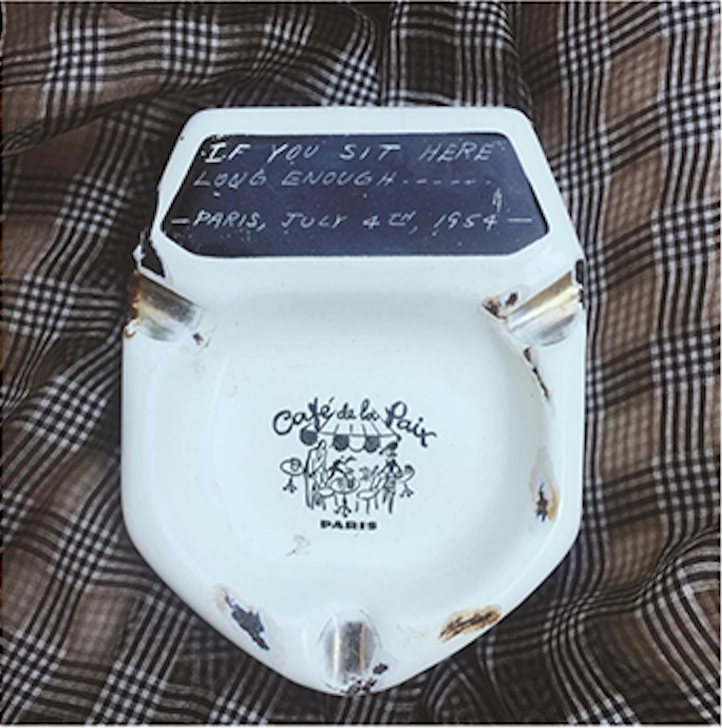 IF YOU SIT HERE
LONG ENOUGH------
—PARIS, JULY 4TH, 1954—
Café de la Paix
PARIS